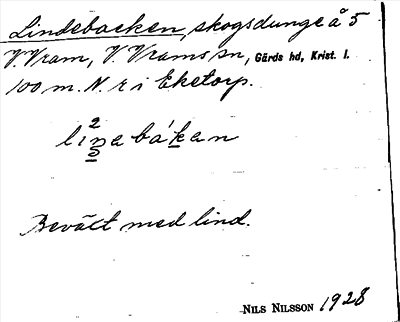 Lindebacken, skogsdunge å 5
V. Vram, V. Vrams sn, Gärds hd, Krist. l.
100 m. N. r i Eketorp.
2
linebákan
Beväxt med lind.
NILS NILSSON 1928